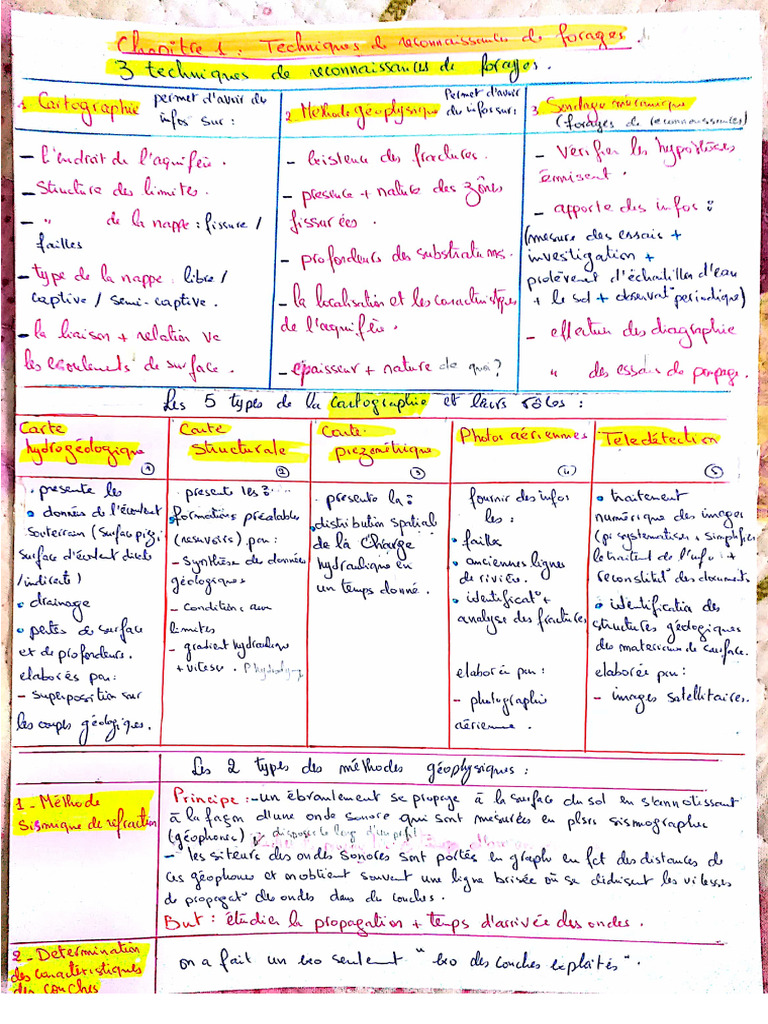 Chapitre 1 : Techniques de reconnaissances de forages.
3 techniques de reconnaissances de forages.
1 Cartographie permet d'avoir du
infos sur :
- l'endroit de l'aquifère.
- Structure des limites.
- " de la nappe : fissure /
failles
- type de la nappe : libre /
captive / semi-captive.
- la liaison + relation vc
les écoulements de surface.
2 Méthode géophysique Permet d'avoir
du infos sur :
- Existence des fractures.
- presence + nature des zônes
fissurées.
- profondeurs des substratums.
- la localisation et les caractéristiques
de l'aquifère.
- epaisseur + nature de quoi?
3 Sondage mécanique
(forages de reconnaissances)
- Vérifier les hypothèses
émisent.
- apporte des infos :
(mesure des essais +
investigation +
prélèvent d'échantillon d'eau
+ le sol + observat° periodique)
- effectuer des diagraphie
" des essais de pompage.
Les 5 types de la Cartographie et leurs rôles :
Carte
hydrogéologique
1
. presente les
. données de l'écoulent
souterrain (Surface piézo
surface d'écoulent directe
/indirecte)
. drainage
. pertes de surface
et de profondeurs.
elaborés par :
- Superposition sur
les coupes géologiques.
Carte
Structurale
2
. presente les :
. formations préalables
(reservoirs) par :
- Synthèse de données
géologiques
- Conditions aux
limites
- gradient hydraulique
+ vitesse.
Carte
piezométrique
3
. presente la :
. distribution spatial
de la Charge
hydraulique en
un temps donné.
Photos aériennes
4
fournir des infos
les :
. failles
. anciennes lignes
de rivière.
. identificat° +
analyse des fractures
elaborée par :
- photographie
aérienne.
Teledétection
5
. traitement
numérique des images
(pr systematiser + simplifier
le traitent de l'info : +
reconstitut° des documents
. identification des
structures géologiques
des materiaux de surface.
elaborée par :
- images satellitaires.
Les 2 types des méthodes géophysiques :
1 - Méthode
Sismique de réfraction
Principe : - un ébranlement se propage à la surface du sol en s'annotissant
à la façon d'une onde sonore qui sont mesurées en plsrs sismographe
(géophones) disposer le long d'un profil
- les siteurs des ondes Sonores sont portés en graph en fct des distances de
ces géophones et on obtient souvent une ligne brisée où se didisent les vitesses
de propagat° des ondes dans du couches.
But : étudier la propagation + temps d'arrivée des ondes.
2 - Determination
des caractéristiques
des couches
on a fait un exo seulement "exo des couches exploités".